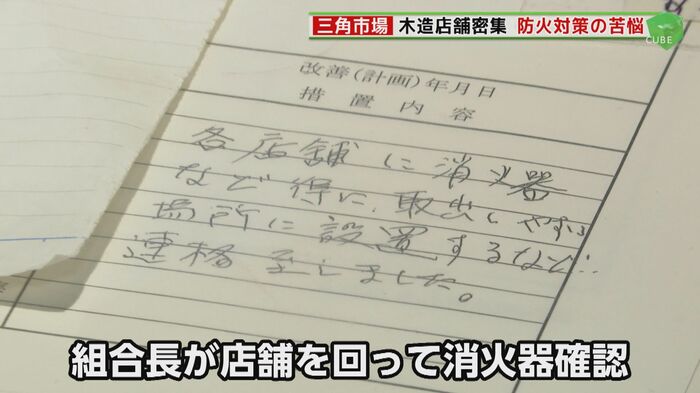 三角市場 木造店舗密集 防火対策の苦悩
CUBE
改善(計画)年月日
措置内容
各店舗に消火器
など得に、取出しやすい
場所に設置するなど
連格致しました。
組合長が店舗を回って消火器確認